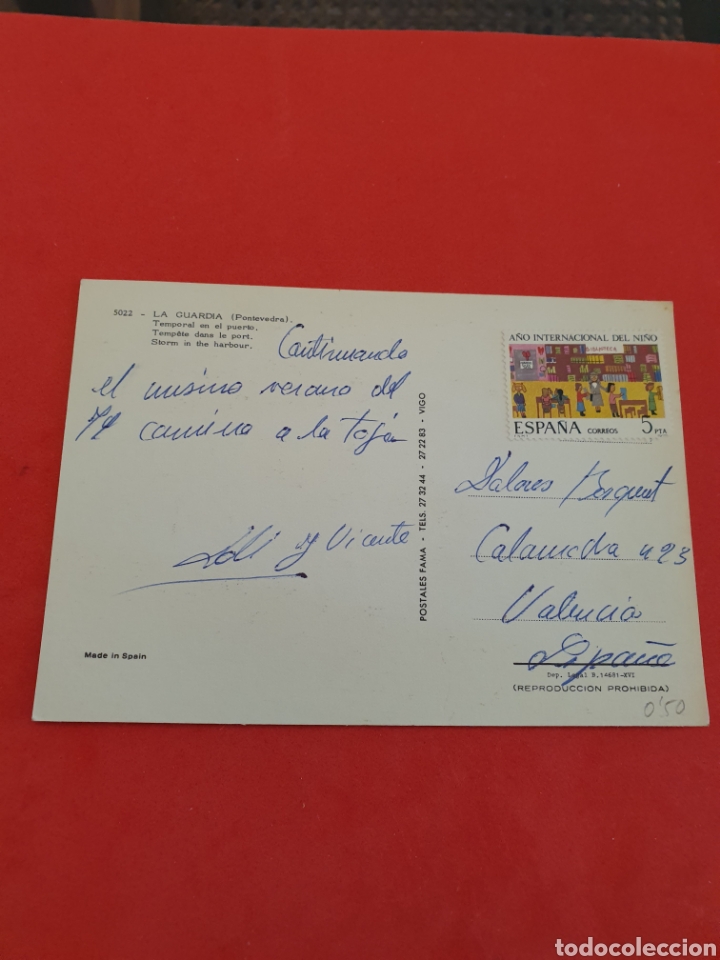 5022 - LA GUARDIA (Pontevedra).
Temporal en el puerto.
Tempête dans le port.
Storm in the harbour.
Continuando
el mismo verano del
camino a la Toja
Loli y Vicente
Made in Spain
POSTALES FAMA - TELS. 27 32 44 - 27 22 83 - VIGO
AÑO INTERNACIONAL DEL NIÑO
ESPAÑA CORREOS 5 PTA
Dolores
Valencia
España
Dep. Legal B.14681-XVI
(REPRODUCCION PROHIBIDA)
0'50
todocoleccion